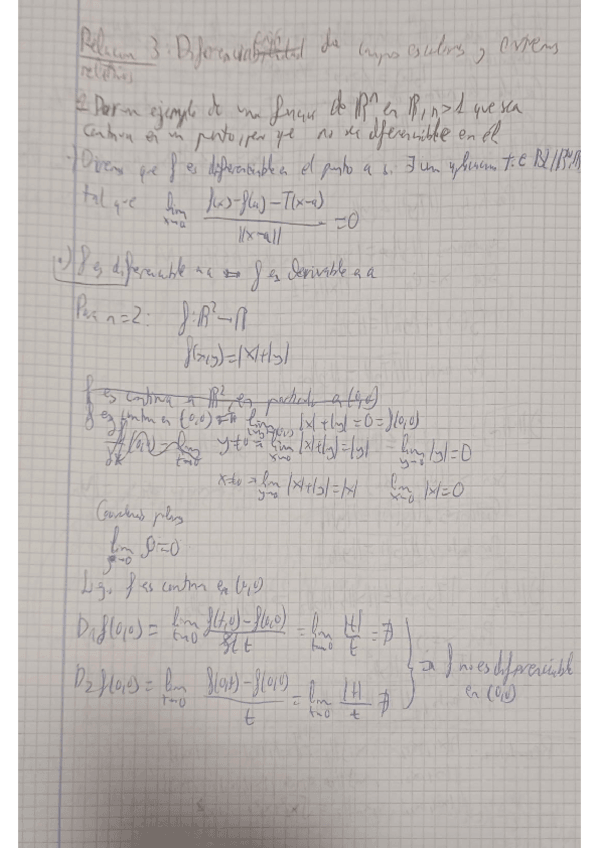 Relación 3: Diferenciabilidad de campos escalares y extremos
relativos
1. Dar un ejemplo de una función de ℝⁿ en ℝ, n>1 que sea
continua en un punto, pero que no sea diferenciable en él
Diremos que f es diferenciable en el punto a si ∃ una aplicación T ∈
tal que lim x→a (f(x)-f(a)-T(x-a))/||x-a|| = 0
f es diferenciable en a ⇔ f es derivable en a
Para n=2: f:ℝ²→ℝ
f(x,y)=|x|+|y|
f es continua en ℝ², en particular en (0,0)
f es continua en (0,0) ⇔ lim (x,y)→(0,0) |x|+|y|=0=f(0,0)
lim t→0 y≠0 lim x→0 |x|+|y|=|y| lim y→0 |y|=0
x≠0 lim y→0 |x|+|y|=|x| lim x→0 |x|=0
Coordenadas polares
lim ρ→0 ρ=0
Luego f es continua en (0,0)
D₁f(0,0)= lim t→0 (f(t,0)-f(0,0))/t = lim t→0 |t|/t = ∄
D₂f(0,0)= lim t→0 (f(0,t)-f(0,0))/t = lim t→0 |t|/t ∄
⇒ f no es diferenciable
en (0,0)